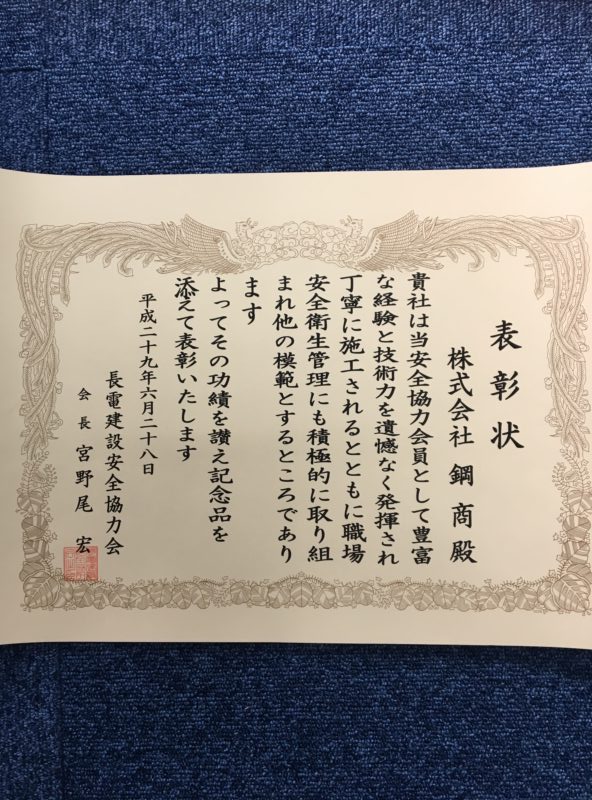 表彰状
株式会社 鋼商殿
貴社は当安全協力会員として豊富
な経験と技術力を遺憾なく発揮され
丁寧に施工されるとともに職場
安全衛生管理にも積極的に取り組
まれ他の模範とするところであり
ます
よってその功績を讃え記念品を
添えて表彰いたします
平成二十九年六月二十八日
長電建設安全協力会
会長 宮野尾 宏